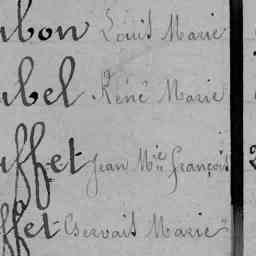 ubon Louis Marie
abel René Marie
uffet Jean Mie François
ffet Gervais Marie